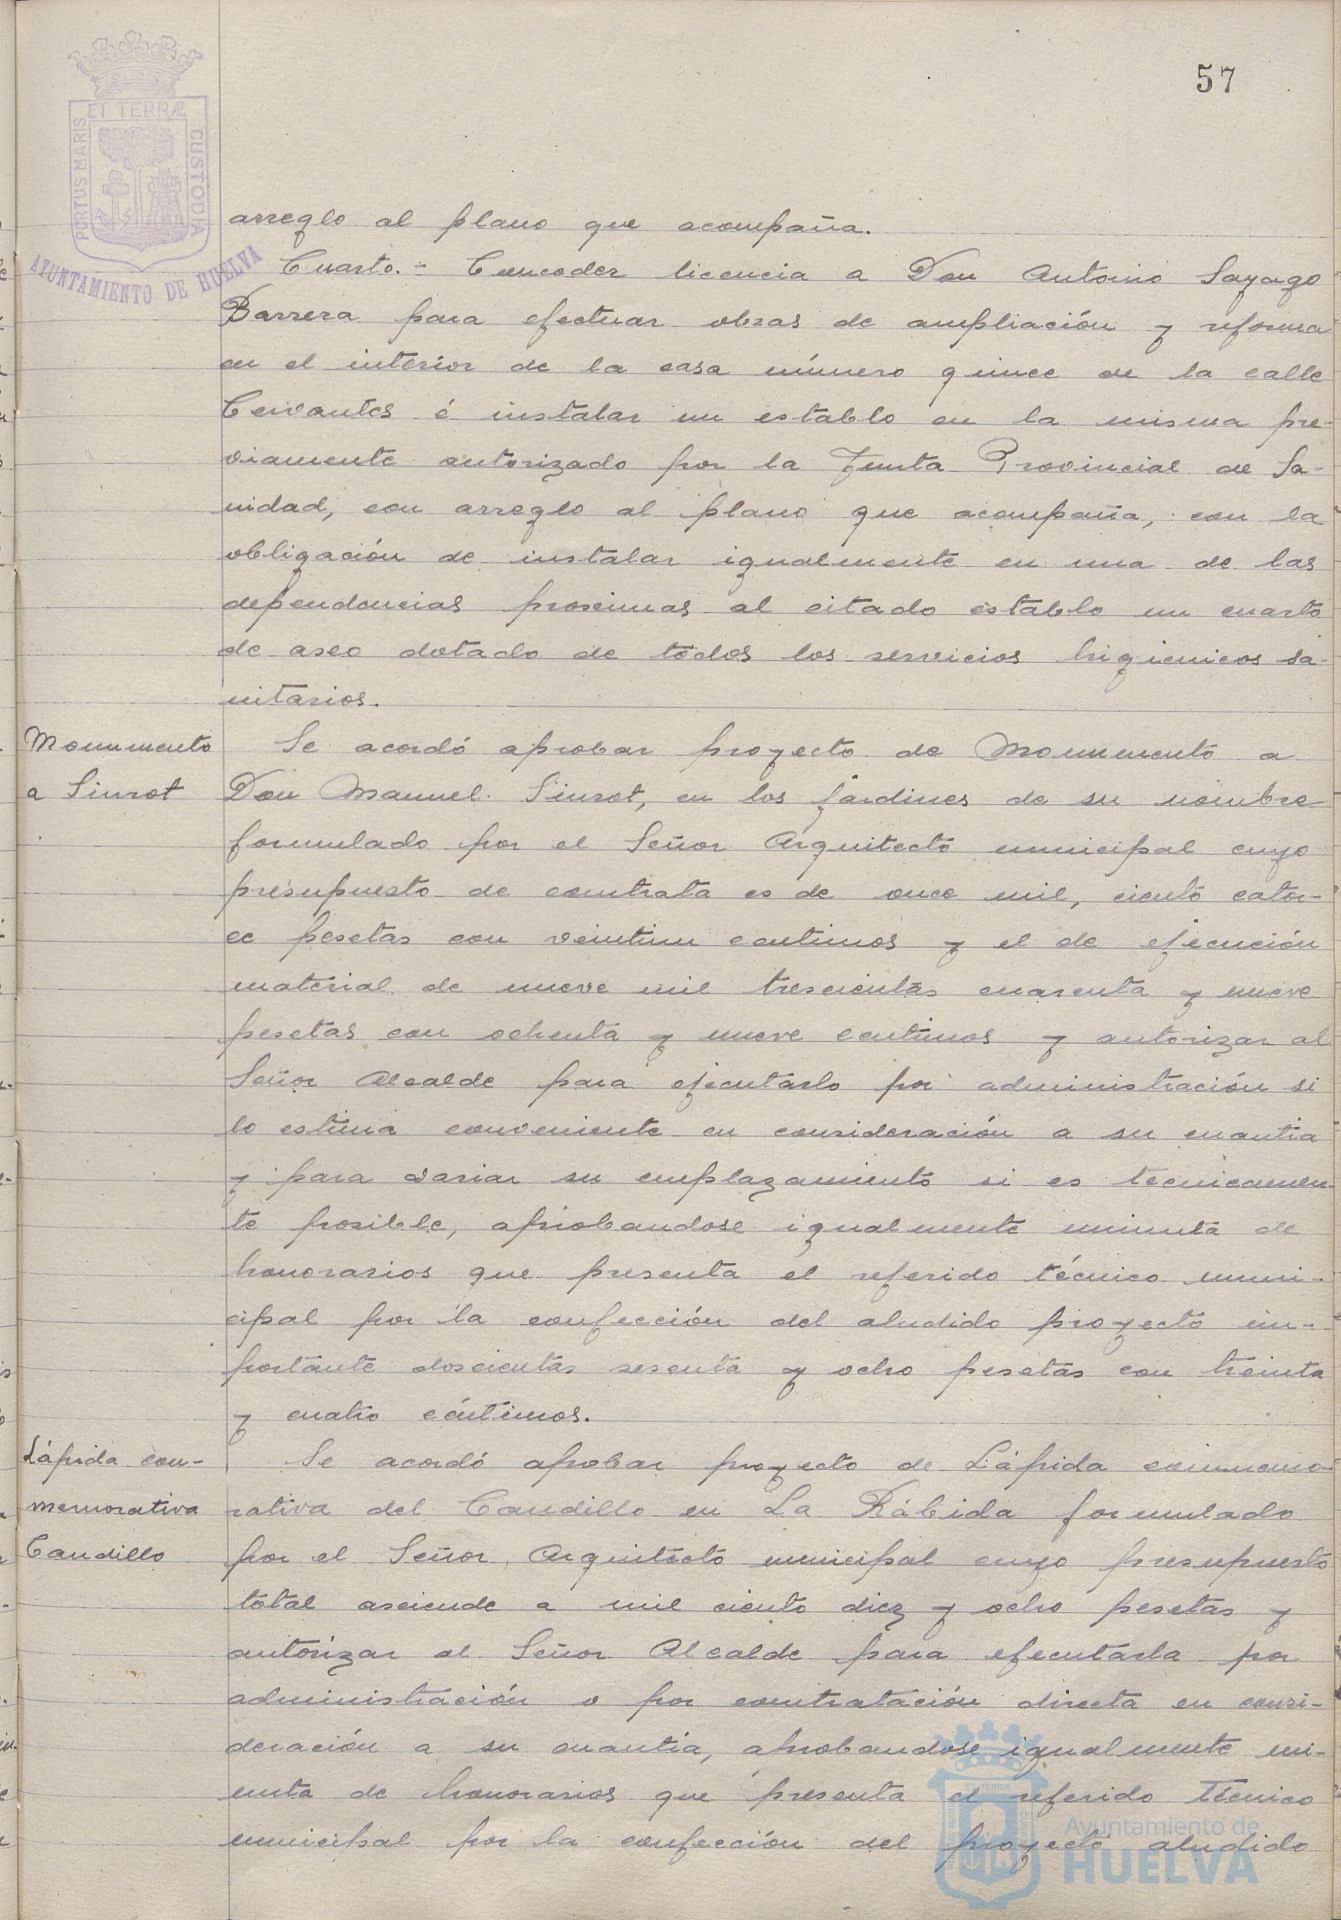 57
PORTUS MARIS
ET TERRÆ
CUSTODIA
AYUNTAMIENTO DE HUELVA
arreglo al plano que acompaña.
Cuarto.- Conceder licencia a Don Antonio Sayago
Barrera para efectuar obras de ampliación y reforma
en el interior de la casa número quince de la calle
Cervantes é instalar un establo en la misma pre-
viamente autorizado por la Junta Provincial de Sa-
nidad, con arreglo al plano que acompaña, con la
obligación de instalar igualmente en una de las
dependencias proximas al citado establo un cuarto
de aseo dotado de todos los servicios higienicos sa-
nitarios.
Monumento
a Siurot
Se acordó aprobar proyecto de Monumento a
Don Manuel Siurot, en los jardines de su nombre
formulado por el Señor Arquitecto municipal cuyo
presupuesto de contrata es de once mil, ciento cator-
ce pesetas con veintiun centimos y el de ejecución
material de nueve mil trescientas cuarenta y nueve
pesetas con ochenta y nueve centimos y autorizar al
Señor Alcalde para ejecutarlo por administración si
lo estima conveniente en consideración a su cuantia
y para variar su emplazamiento si es tecnicamen-
te posible, aprobandose igualmente minuta de
honorarios que presenta el referido técnico muni-
cipal por la confección del aludido proyecto im-
portante doscientas sesenta y ocho pesetas con treinta
y cuatro céntimos.
Lápida con-
memorativa
Caudillo
Se acordó aprobar proyecto de Lápida conmemo-
rativa del Caudillo en La Rábida formulado
por el Señor Arquitecto municipal cuyo presupuesto
total asciende a mil ciento diez y ocho pesetas y
autorizar al Señor Alcalde para ejecutarla por
administración o por contratación directa en consi-
deración a su cuantía, aprobandose igualmente mi-
nuta de honorarios que presenta el referido Técnico
municipal por la confección del proyecto aludido
Ayuntamiento de
HUELVA